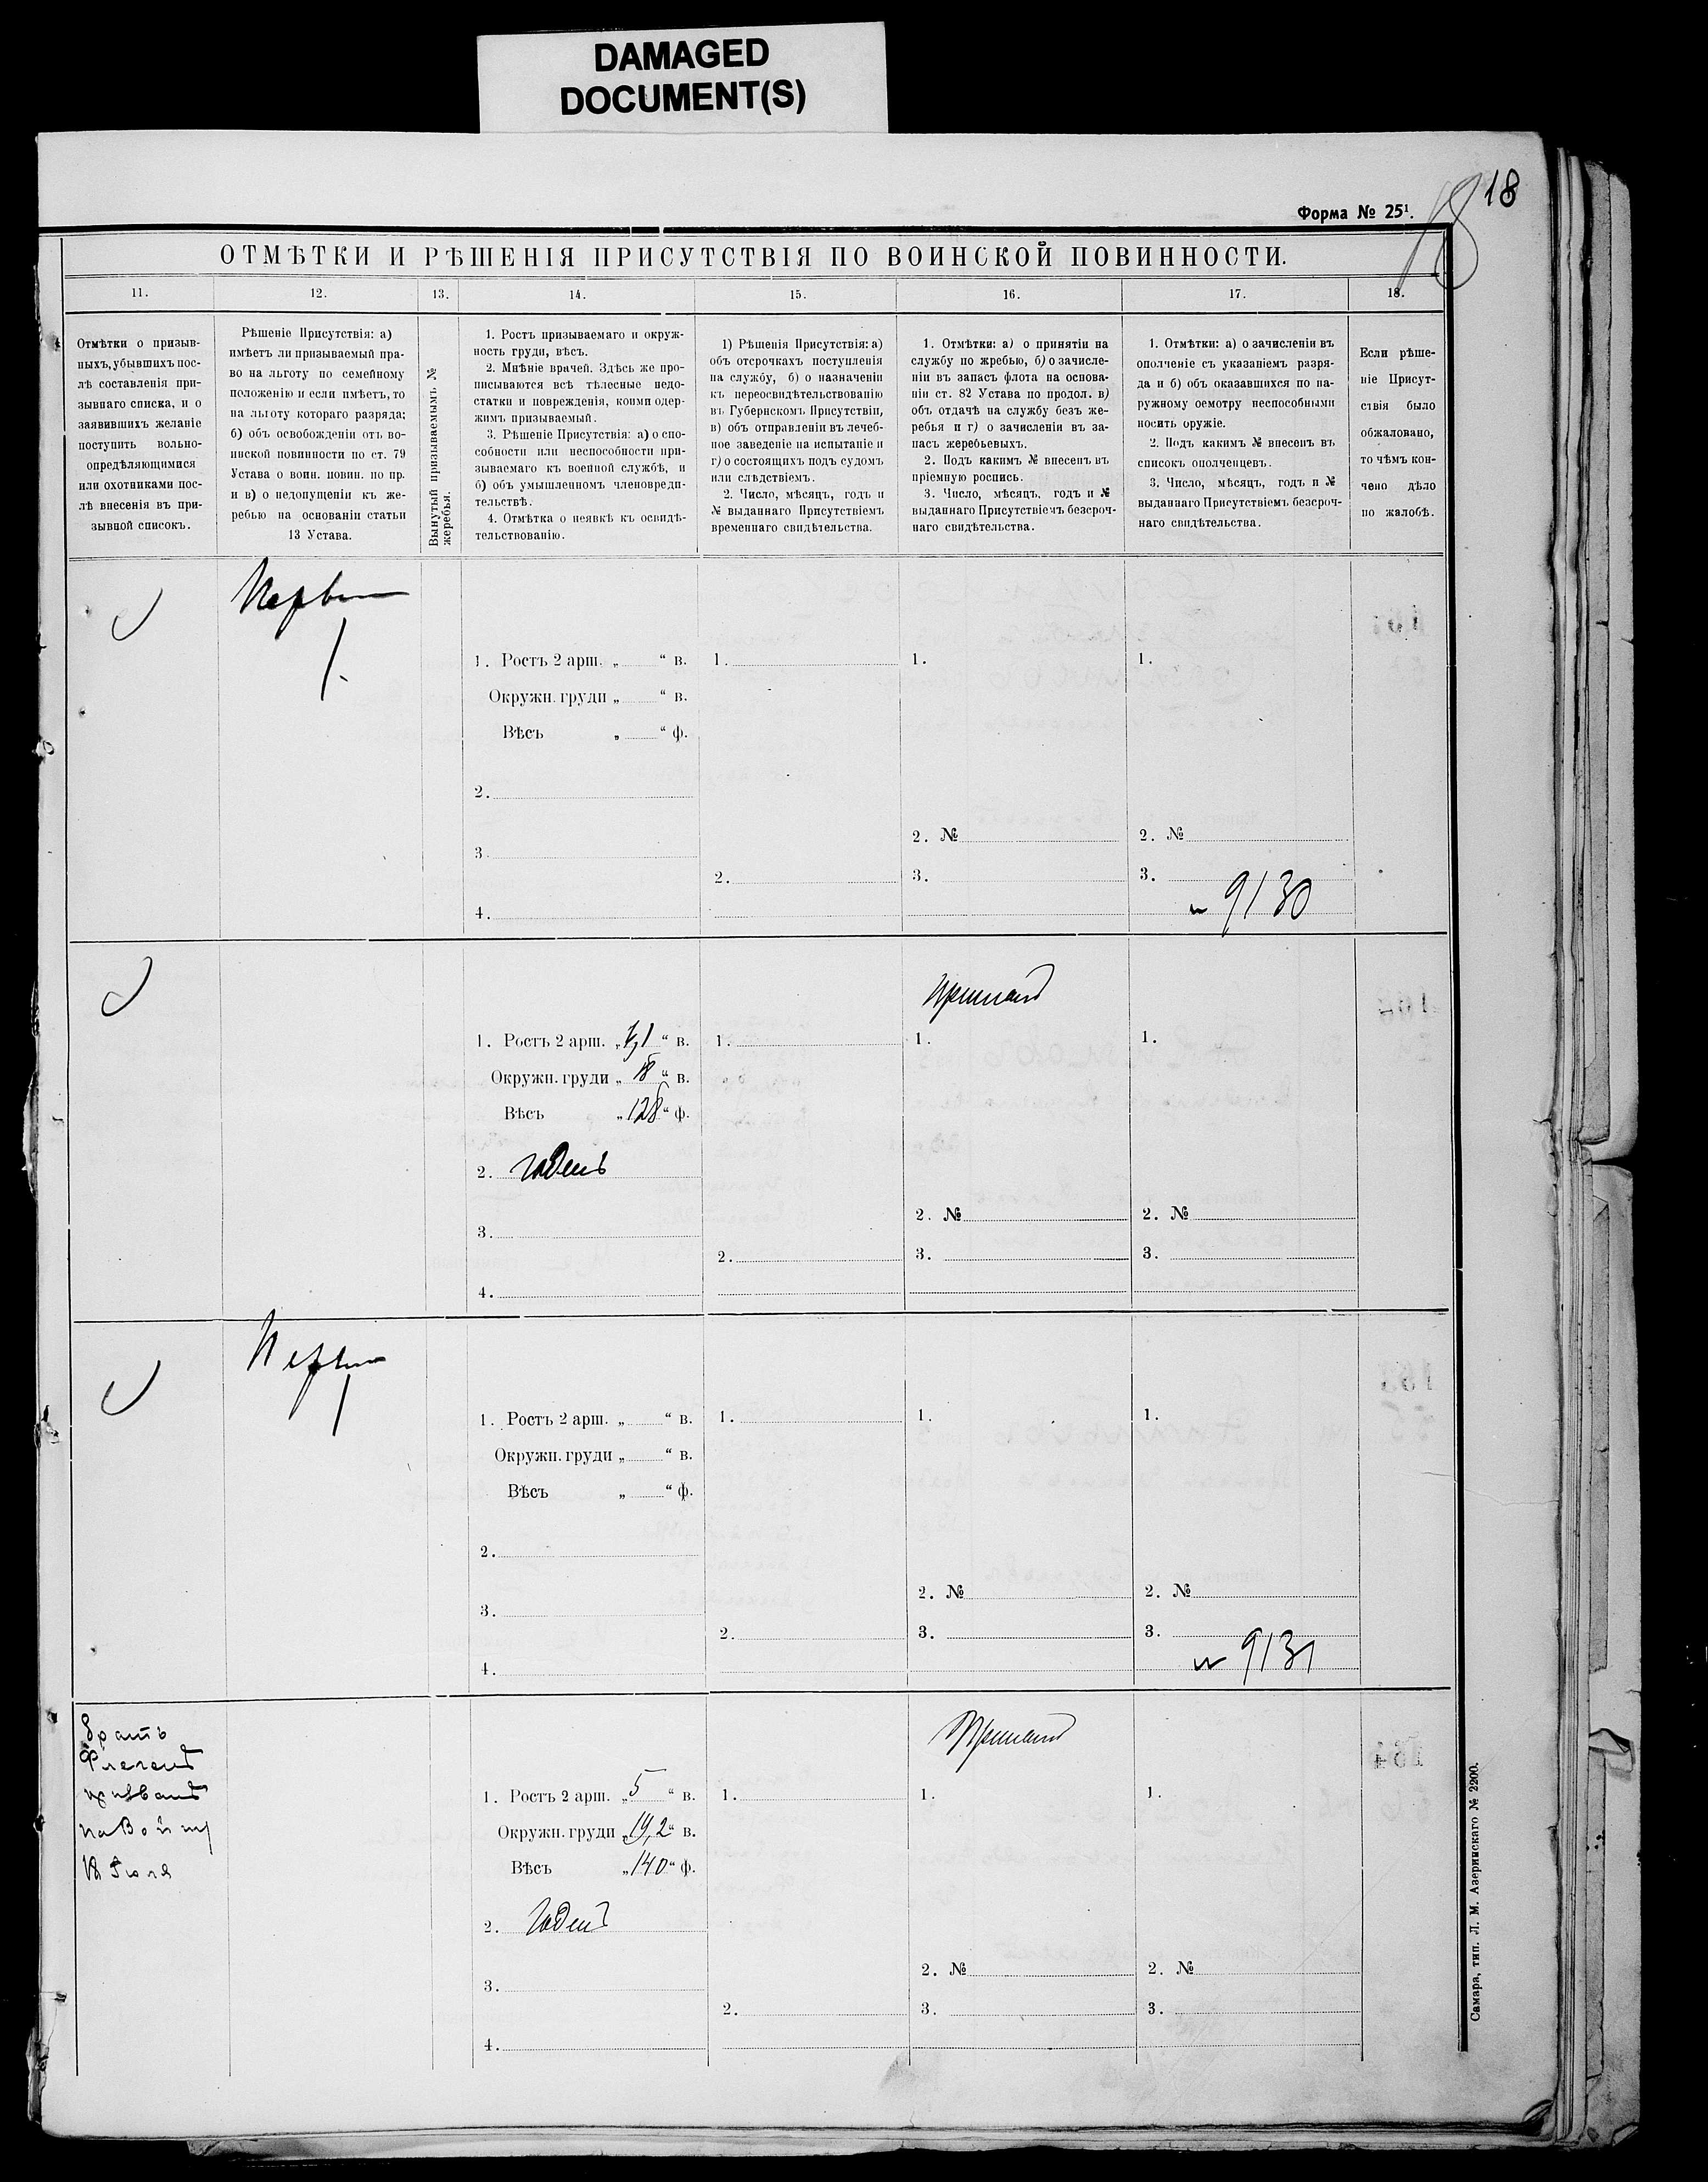 DAMAGED
DOCUMENT(S)
18
18
Форма № 25¹.
ОТМѢТКИ И РѢШЕНІЯ ПРИСУТСТВІЯ ПО ВОИНСКОЙ ПОВИННОСТИ.
11. 12. 13. 14. 15. 16. 17. 18.
Отмѣтки о призыв-
ныхъ, убывшихъ пос-
лѣ составленія при-
зывнаго списка, и о
заявившихъ желаніе
поступить вольно-
опредѣляющимися
или охотниками пос-
лѣ внесенія въ при-
зывной списокъ.
Рѣшеніе Присутствія: а)
имѣетъ ли призываемый пра-
во на льготу по семейному
положенію и если имѣетъ, то
на льготу котораго разряда;
б) объ освобожденіи отъ во-
инской повинности по ст. 79
Устава о воин. повин. по пр.
и в) о недопущеніи къ же-
ребью на основаніи статьи
13 Устава.
Вынутый призываемымъ №
жеребья.
1. Ростъ призываемаго и окруж-
ность груди, вѣсъ.
2. Мнѣніе врачей. Здѣсь же про-
писываются всѣ тѣлесные недо-
статки и поврежденія, коими одер-
жимъ призываемый.
3. Рѣшеніе Присутствія: а) о спо-
собности или неспособности при-
зываемаго къ военной службѣ, и
б) объ умышленномъ членовреди-
тельствѣ.
4. Отмѣтка о неявкѣ къ освидѣ-
тельствованію.
1) Рѣшенія Присутствія: а)
объ отсрочкахъ поступленія
на службу, б) о назначеніи
къ переосвидѣтельствованію
въ Губернскомъ Присутствіи,
в) объ отправленіи въ лечеб-
ное заведеніе на испытаніе и
г) о состоящихъ подъ судомъ
или слѣдствіемъ.
2. Число, мѣсяцъ, годъ и
№ выданнаго Присутствіемъ
временнаго свидѣтельства.
1. Отмѣтки: а) о принятіи на
службу по жребью, б) о зачисле-
ніи въ запасъ флота на основа-
ніи ст. 82 Устава по продол. в)
объ отдачѣ на службу безъ же-
ребья и г) о зачисленіи въ за-
пасъ жеребьевыхъ.
2. Подъ какимъ № внесенъ въ
пріемную роспись.
3. Число, мѣсяцъ, годъ и №
выданнаго Присутствіемъ безсроч-
наго свидѣтельства.
1. Отмѣтки: а) о зачисленіи въ
ополченіе съ указаніемъ разря-
да и б) объ оказавшихся по на-
ружному осмотру неспособными
носить оружіе.
2. Подъ какимъ № внесенъ въ
списокъ ополченцевъ.
3. Число, мѣсяцъ, годъ и №
выданнаго Присутствіемъ безсроч-
наго свидѣтельства.
Если рѣше-
ніе Присут-
ствія было
обжаловано,
то чѣмъ кон-
чено дѣло
по жалобѣ.
1. Ростъ 2 арш. „ “ в. 1. 1. 1.
Окружн. груди „ “ в.
Вѣсъ „ “ ф.
2.
2. № 2. №
3
2. 3. 3.
9130
4.
Принятъ
1. Ростъ 2 арш. „ “ в. 1. 1. 1.
Окружн. груди „ 18 “ в.
Вѣсъ „ 128 “ ф.
2. годенъ
2. № 2. №
3.
2. 3. 3.
4.
1. Ростъ 2 арш. „ “ в. 1. 1. 1.
Окружн. груди „ “ в.
Вѣсъ „ “ ф.
2.
2. № 2. №
3.
2. 3. 3.
9131
4.
братъ
на войну
Іюля
Принятъ
1. Ростъ 2 арш. „ 5 “ в. 1. 1. 1.
Окружн. груди „ 19,2 “ в.
Вѣсъ „ 140 “ ф.
2. Годенъ
2. № 2. №
3.
2. 3. 3.
4.
Самара, тип. Л. М. Азеринскаго № 2200.